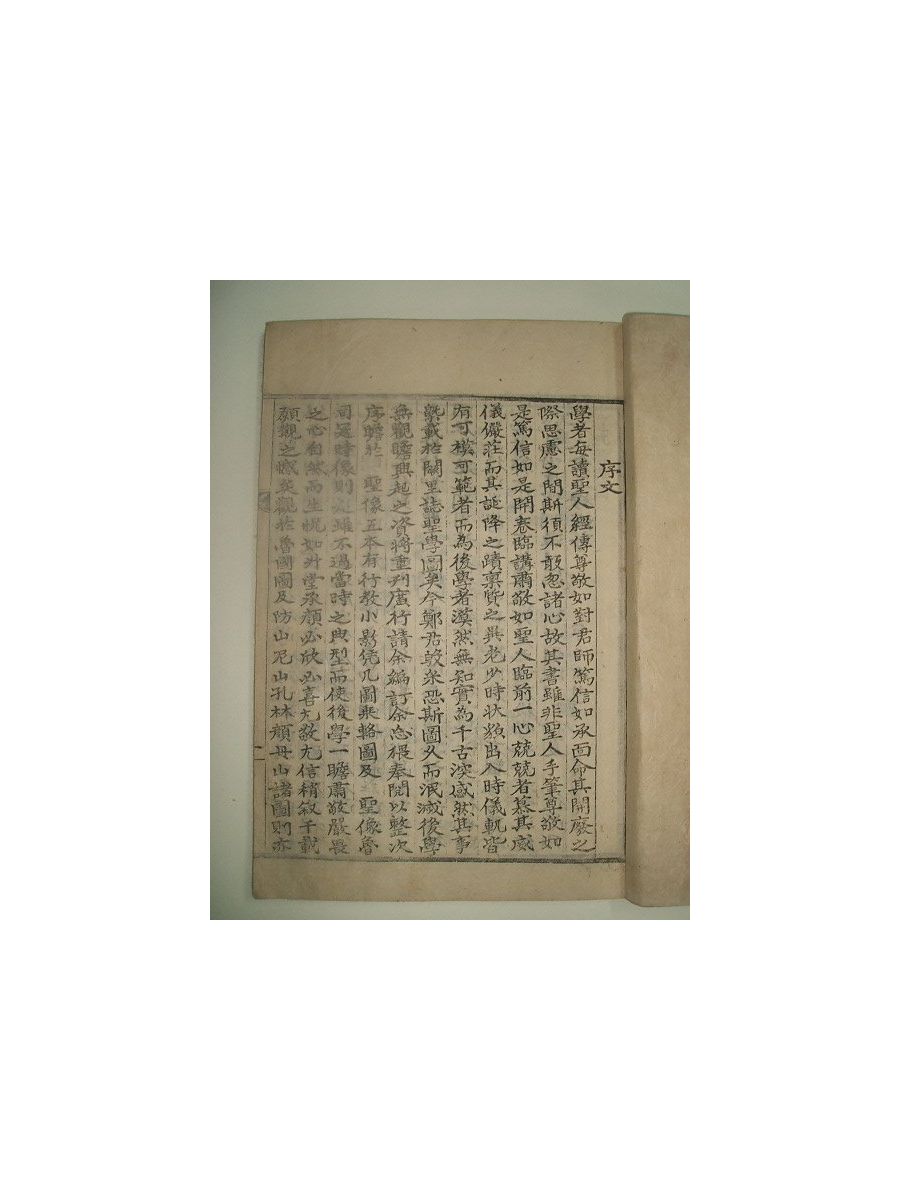 序文
學者每讀聖人經傳尊敬如對君師篤信如承面命其開廢之
際思慮之間斯須不敢忽諸心故其書雖非聖人手筆尊敬如
是篤信如是開卷臨講肅敬如聖人臨前一心兢兢者慕其威
儀儼莊而其誕降之蹟稟質之異老少時狀貌出入時儀軌皆
有可模可範者而為後學者漠然無知實為千古深感然其事
槩載於闕里誌聖學圖矣今鄭君毅采恐斯圖久而泯滅後學
無觀瞻興起之資將重刊廣行請余編訂余忘猥奉閱以整次
序瞻於 聖像五本有行教小影凭几圖乘輅圖及 聖像魯
司寇時像則 雖不過當時之典型而使後學一瞻肅敬嚴畏
之心自然而生怳如升堂承顔必欣必喜尤敬尤信稍叙千載
願觀之懷矣觀於魯國圖及防山尼山孔林顔母山諸圖則亦
一